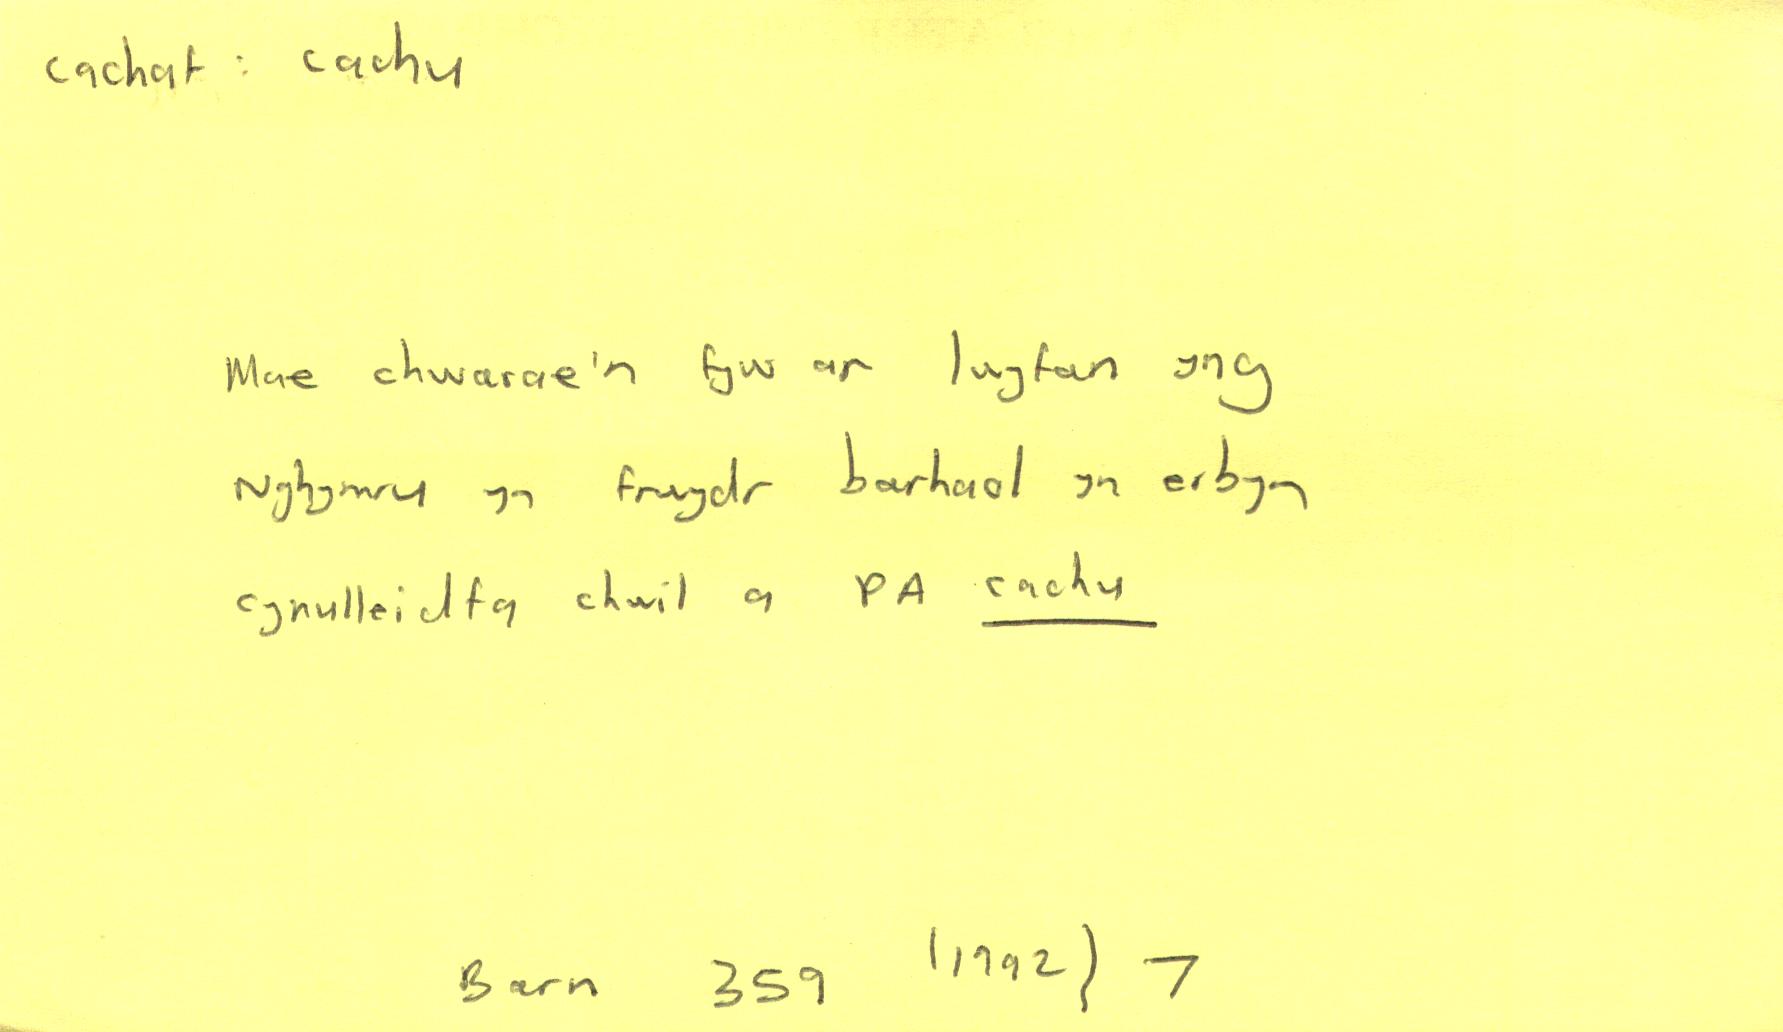 cachaf : cachu
Mae chwarae'n fyw ar lwyfan yng
Nghymru yn frwydr barhaol yn erbyn
cynulleidfa chwil a PA cachu
Barn 359 (1992) 7